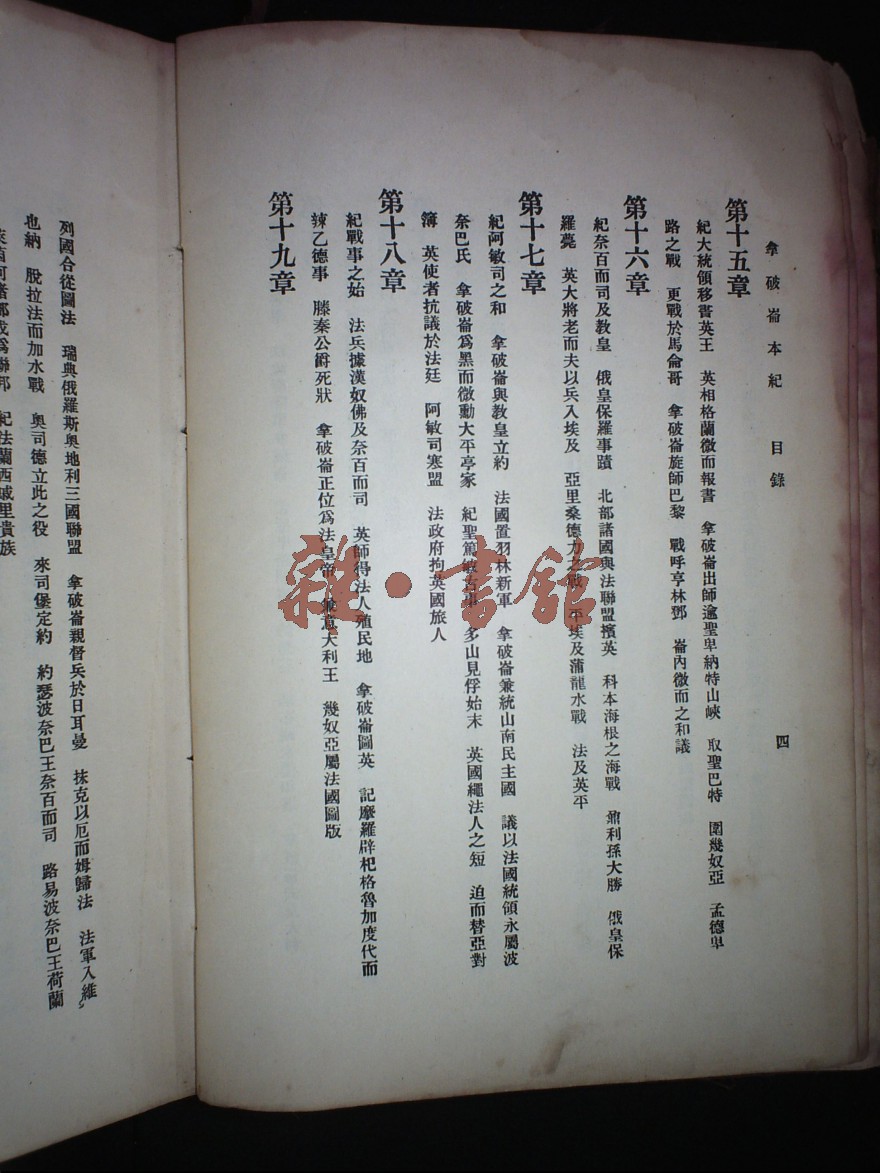 拿破崙本紀 目錄 四
第十五章
紀大統領移書英王 英相格蘭微而報書 拿破崙出師逾聖卑納特山峽 取聖巴特 圍幾奴亞 孟德卑
路之戰 更戰於馬侖哥 拿破崙旋師巴黎 戰呼亨林鄧 崙內微而之和議
第十六章
紀奈百而司及教皇 俄皇保羅事蹟 北部諸國與法聯盟擯英 科本海根之海戰 鼐利孫大勝 俄皇保
羅薨 英大將老而夫以兵入埃及 亞里桑德力之戰 平埃及蒲龍水戰 法及英平
第十七章
紀阿敏司之和 拿破崙與教皇立約 法國置羽林新軍 拿破崙兼統山南民主國 議以法國統領永屬波
奈巴氏 拿破崙為黑而微勳大平亭家 紀聖篤敏古事 多山見俘始末 英國繩法人之短 迫而替亞對
簿 英使者抗議於法廷 阿敏司寒盟 法政府拘英國旅人
第十八章
紀戰事之始 法兵據漢奴佛及奈百而司 英師得法人殖民地 拿破崙圖英 記摩羅辟杞格魯加度代而
辣乙德事 滕秦公爵死狀 拿破崙正位為法皇帝 兼意大利王 幾奴亞屬法國圖版
第十九章
列國合從圖法 瑞典俄羅斯奧地利三國聯盟 拿破崙親督兵於日耳曼 抹克以厄而姆歸法 法軍入維
也納 脫拉法而加水戰 奧司德立此之役 來司堡定約 約瑟波奈巴王奈百而司 路易波奈巴王荷蘭
聯邦 紀法蘭西戚里貴族
雜·書館